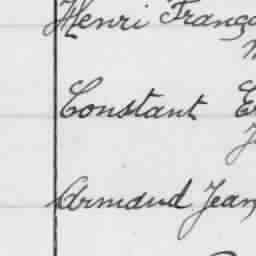 Henri Franço
Constant E
Armand Jean